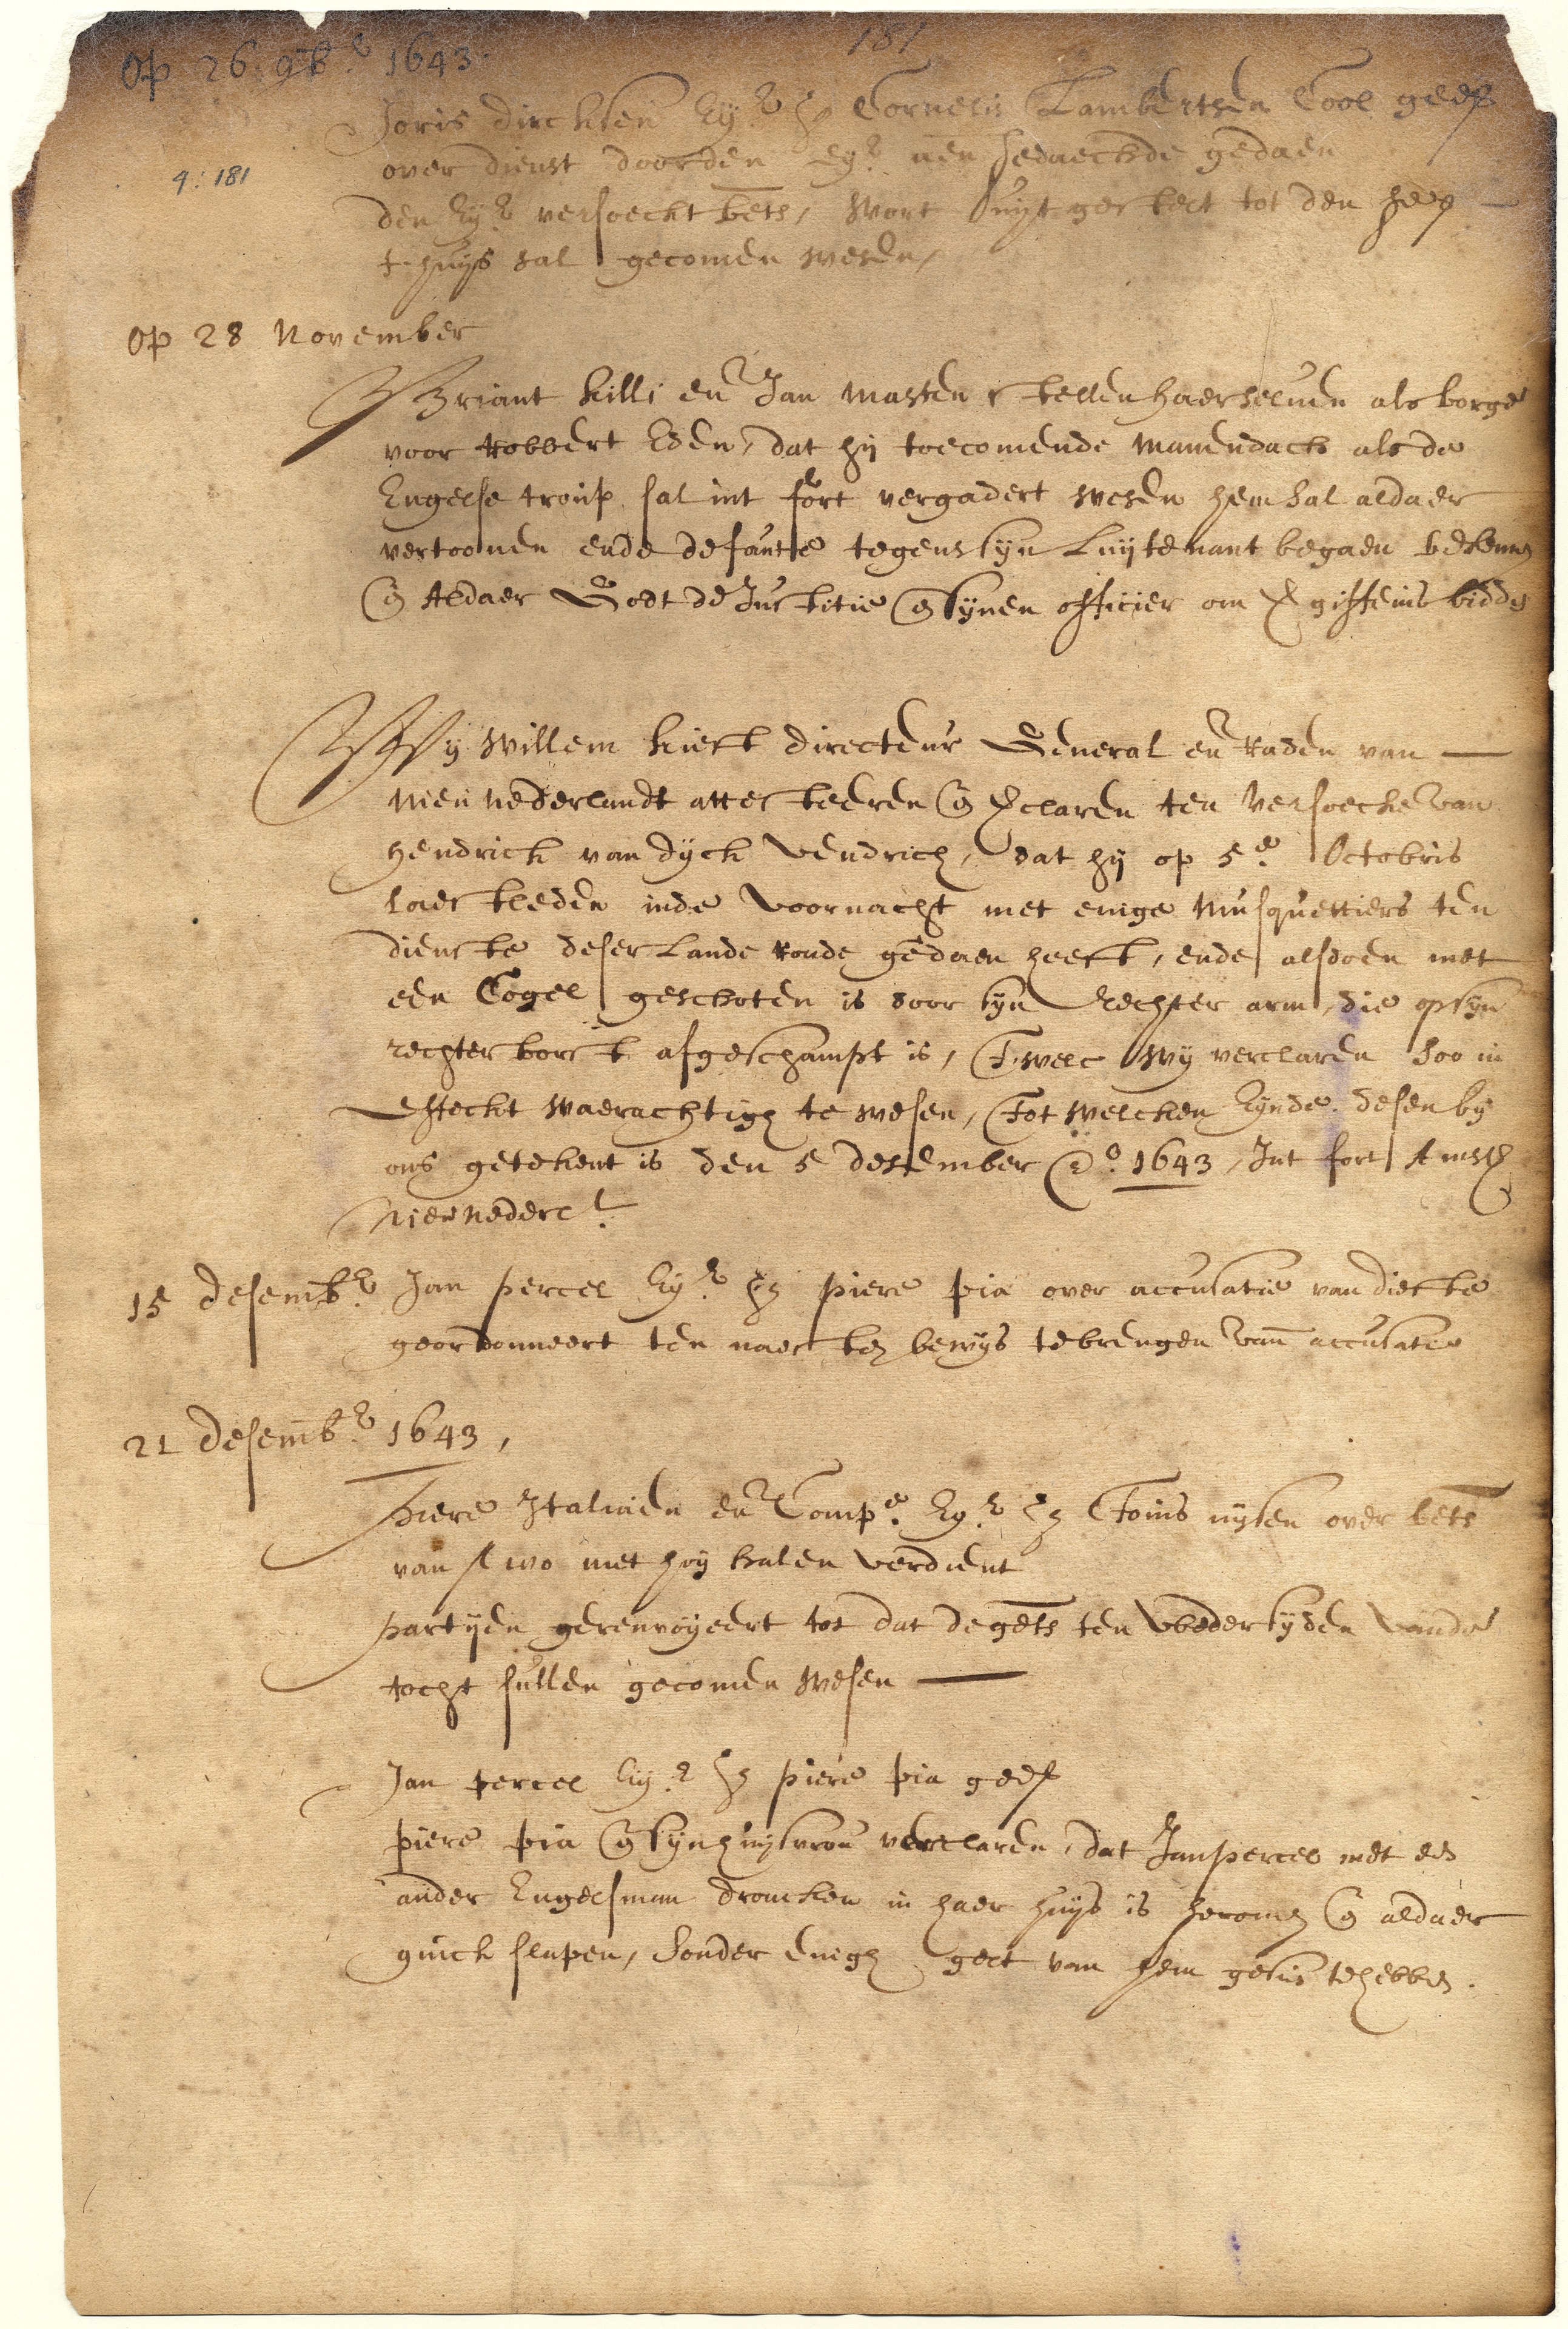 181
Op 26. 9b.r 1643.
Joris dircksen Ey.r Cornelis Lambertsen Cool geds
4:181
over dienst door den Ey.r aen gedaechde gedaen
den Ey.r versoeckt bets, wort uijtgestelt tot den gedes
t'huijs sal gecomen wesen,
Op 28 November
Briant killi en Jan Masten stellen haerselven als borge
voor Robbert Eden, dat hij toecomende manendach als de
Engelse troup sal int fort vergadert wesen hem sal aldaer
vertoonen ende de faute tegens sijn Luijtenant begaen bekennen
en Aldaer Godt de Justitie en sijnen officier om vergiffenis bidden
Wij Willem Kieft directeur General en Raden van
nieu nederlandt attesteeren en verclaren ten versoecke van
Hendrick van Dyck vendrich, dat hij op 5.e Octobris
laestleden inde voornacht met enige Musquettiers ten
dienste deser Lande ronde gedaen heeft, ende alsdoen met
een Cogel geschoten is door sijn rechter arm, die op sijn
rechter borst afgeschampt is, Twelc wij verclaren soo in
Effeckt waerachtigh te wesen, Tot welcken Eynde desen bij
ons getekent is den 5 desember A.o 1643, Int fort Amst
Nieu nederl.t
15 desemb.r Jan percel Ey.r piere pia over accusatie van diefte
geordonneert ten naesten bewijs te brengen van accusatie
21 desemb.r 1643,
Piere Italiaen en Comp.e Ey.r Tonis nysen over bets
van Awo met hoij halen verdient
partijen gerenvoyeert tot dat de gets ten wedersyden vande
tocht sullen gecomen wesen
Jan percel Ey.r piere pia geds
piere pia en sijn huijsvrou verclaren, dat Jan percel met een
ander Engelsman droncken in haer huijs is gecomen en aldaer
ginck slapen, sonder enigh gelt van hem gesien te hebben.